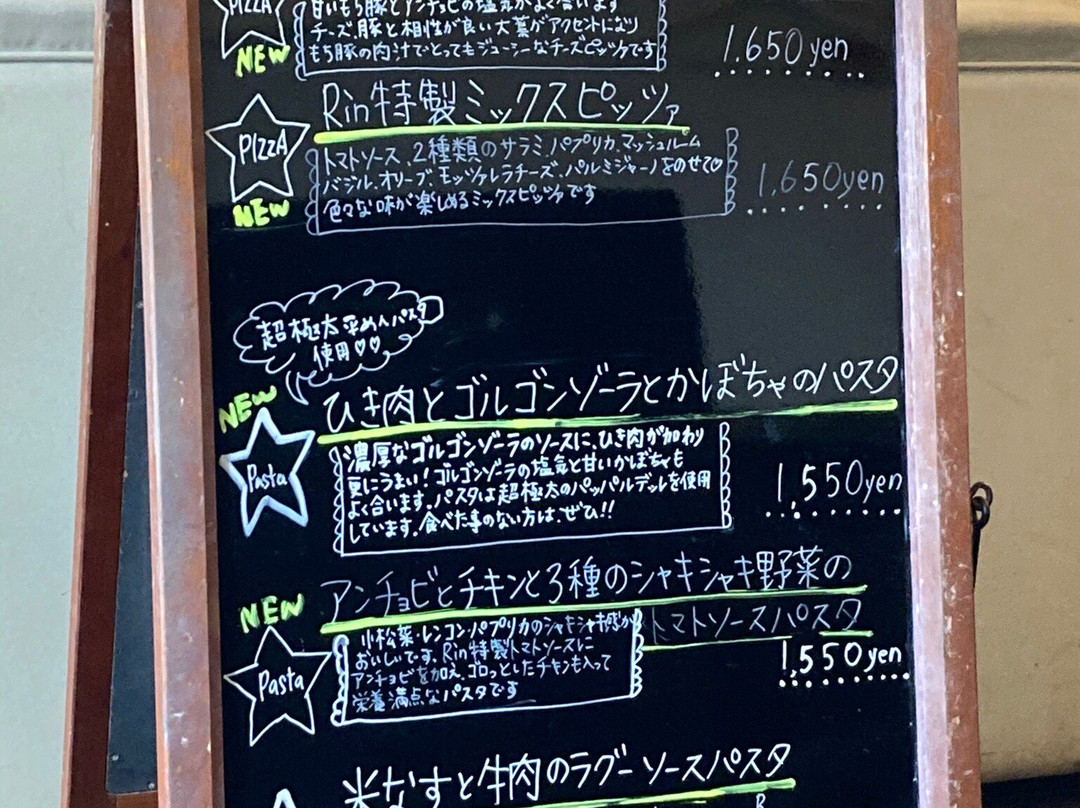 PIZZA
NEW
甘いもち豚とアンチョビの塩気がよく合います
チーズ、豚と相性が良い大葉がアクセントになり
もち豚の肉汁でとってもジューシーなチーズピッツァです
1,650yen
PIZZA
NEW
Rin特製ミックスピッツァ
トマトソース、2種類のサラミ、パプリカ、マッシュルーム
バジル、オリーブ、モッツァレラチーズ、パルミジャーノをのせて♡
色々な味が楽しめるミックスピッツァです
1,650yen
超極太平めんパスタ
使用♡♡
NEW
Pasta
ひき肉とゴルゴンゾーラとかぼちゃのパスタ
濃厚なゴルゴンゾーラのソースに、ひき肉が加わり
更にうまい!ゴルゴンゾーラの塩気と甘いかぼちゃも
よく合います。パスタは超極太のパッパルデッレを使用
しています。食べた事のない方は、ぜひ!!
1,550yen
NEW
Pasta
アンチョビとチキンと3種のシャキシャキ野菜の
トマトソースパスタ
小松菜・レンコン・パプリカのシャキシャキ感が
おいしいです。Rin特製トマトソースに
アンチョビを加え、ゴロっとしたチキンも入って
栄養満点なパスタです
1,550yen
米なすと牛肉のラグーソースパスタ